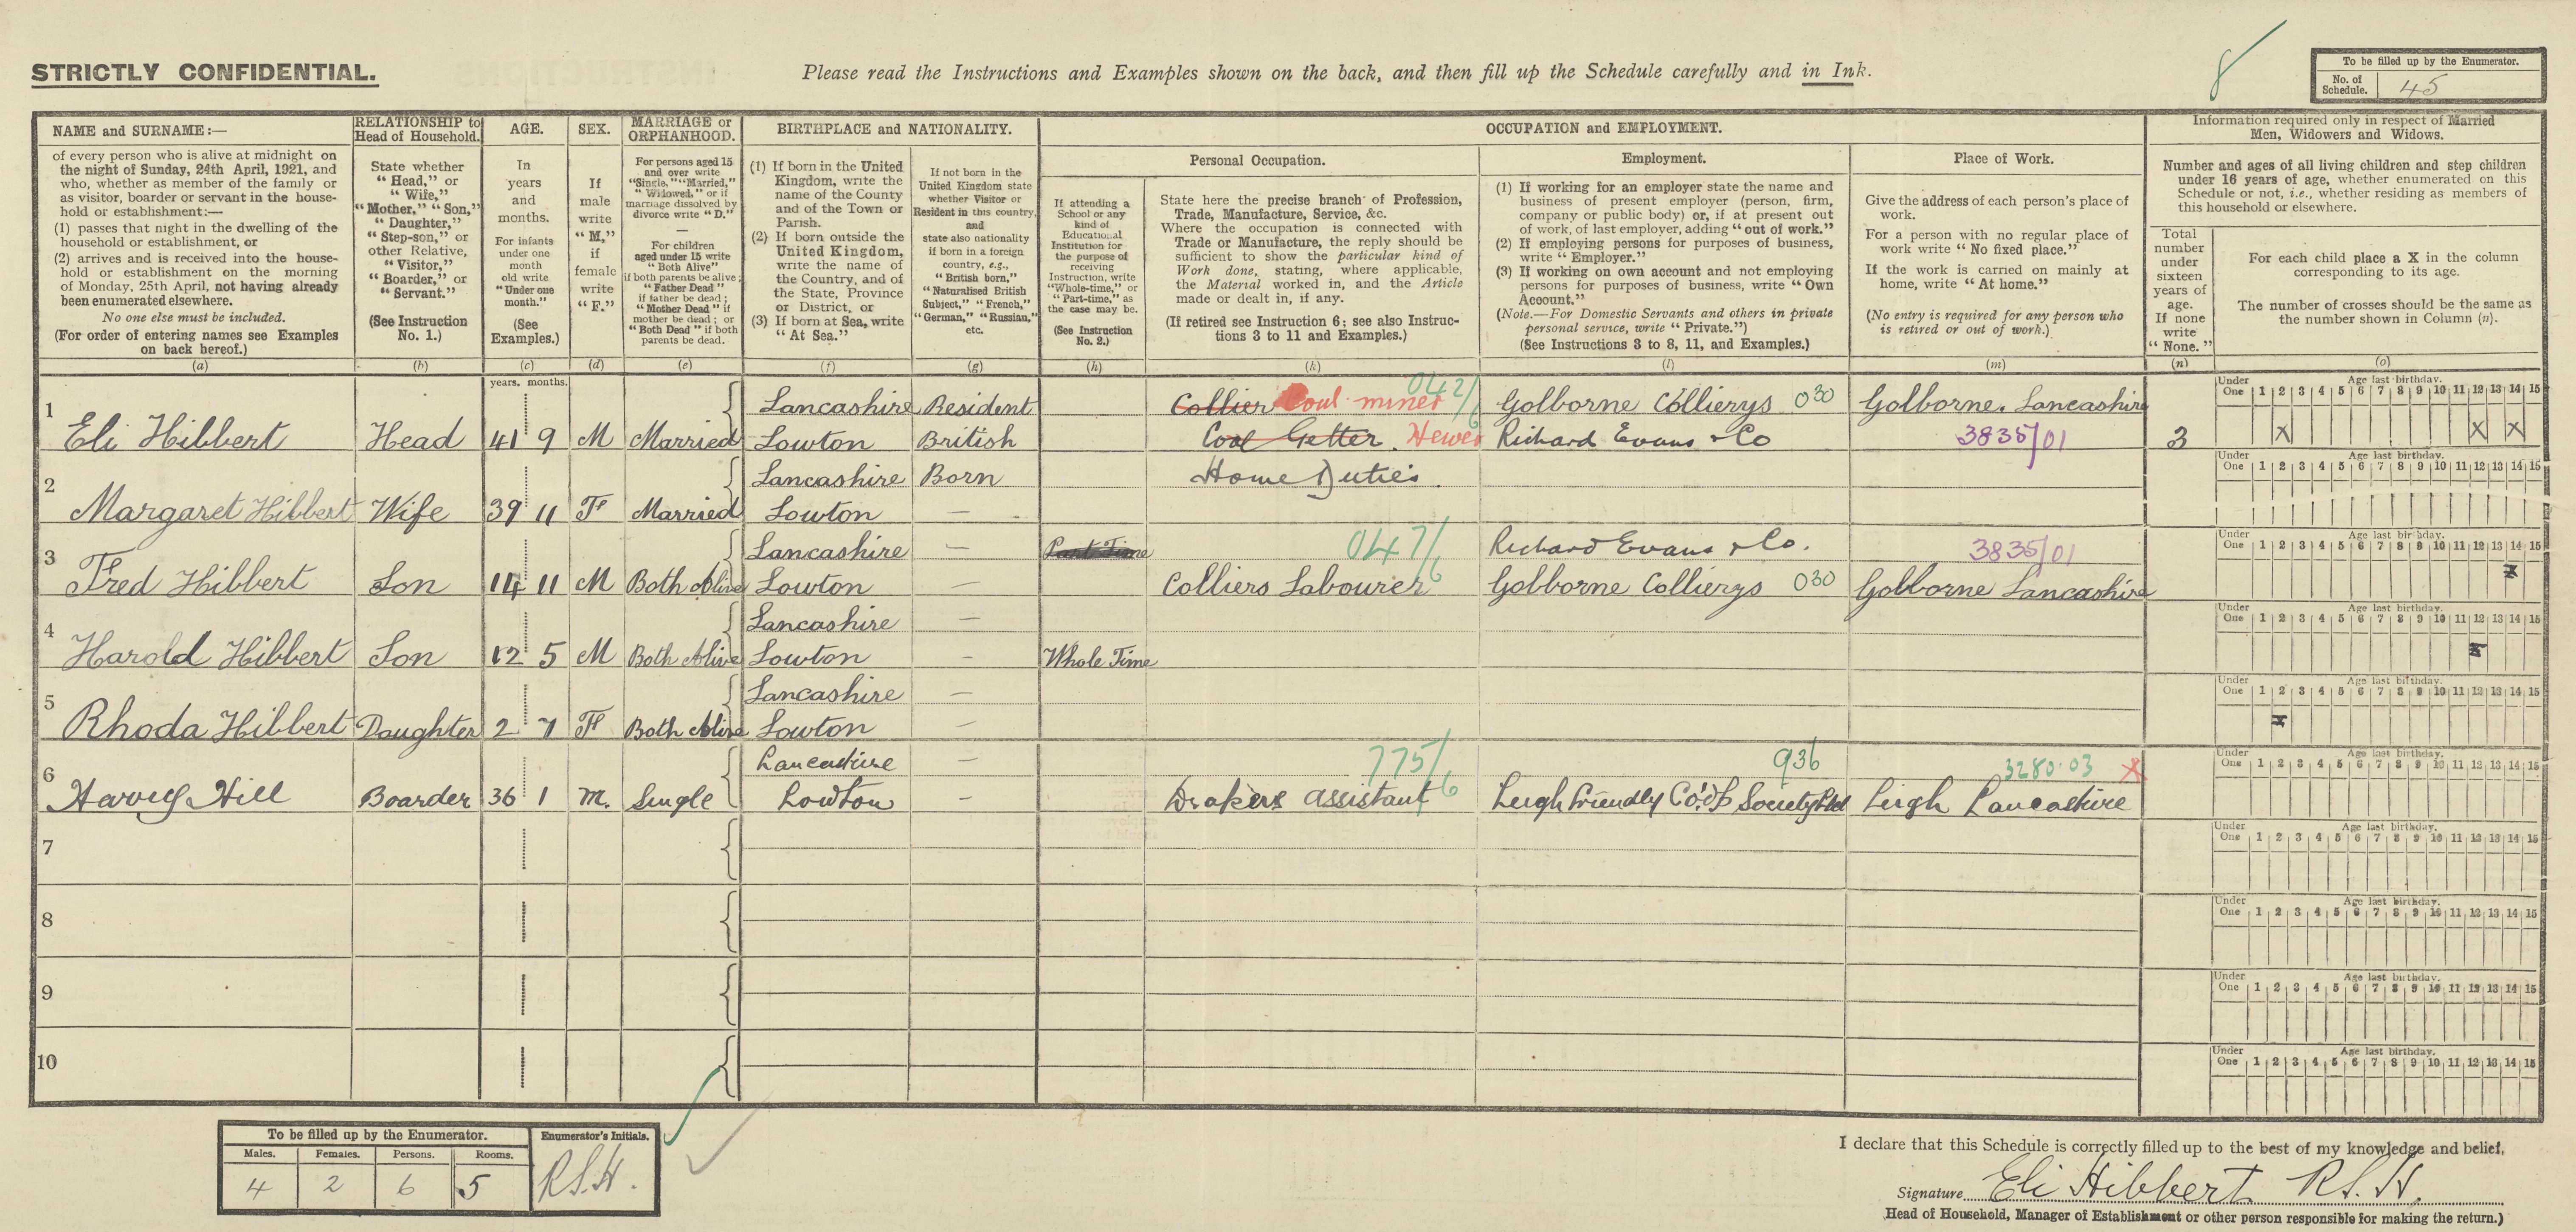 STRICTLY CONFIDENTIAL.
Please read the Instructions and Examples shown on the back, and then fill up the Schedule carefully and in Ink.
8
To be filled up by the Enumerator.
No. of Schedule. 45
NAME and SURNAME:—
of every person who is alive at midnight on
the night of Sunday, 24th April, 1921, and
who, whether as member of the family or
as visitor, boarder or servant in the house-
hold or establishment:—
(1) passes that night in the dwelling of the
household or establishment, or
(2) arrives and is received into the house-
hold or establishment on the morning
of Monday, 25th April, not having already
been enumerated elsewhere.
No one else must be included.
(For order of entering names see Examples
on back hereof.)
(a)
RELATIONSHIP to
Head of Household.
State whether
"Head," or
"Wife,"
"Mother," "Son,"
"Daughter,"
"Step-son," or
other Relative,
"Visitor,"
"Boarder," or
"Servant."
(See Instruction
No. 1.)
(b)
AGE.
In
years
and
months.
For infants
under one
month
old write
"Under one
month."
(See
Examples.)
(c)
SEX.
If
male
write
"M,"
if
female
write
"F."
(d)
MARRIAGE or
ORPHANHOOD.
For persons aged 15
and over write
"Single," "Married,"
"Widowed," or if
marriage dissolved by
divorce write "D."
For children
aged under 15 write
"Both Alive"
if both parents be alive;
"Father Dead"
if father be dead;
"Mother Dead" if
mother be dead; or
"Both Dead" if both
parents be dead.
(e)
BIRTHPLACE and NATIONALITY.
(1) If born in the United
Kingdom, write the
name of the County
and of the Town or
Parish.
(2) If born outside the
United Kingdom,
write the name of
the Country, and of
the State, Province
or District, or
(3) If born at Sea, write
"At Sea."
(f)
If not born in the
United Kingdom state
whether Visitor or
Resident in this country,
and
state also nationality
if born in a foreign
country, e.g.,
"British born,"
"Naturalised British
Subject," "French,"
"German," "Russian,"
etc.
(g)
OCCUPATION and EMPLOYMENT.
Personal Occupation.
If attending a
School or any
kind of
Educational
Institution for
the purpose of
receiving
Instruction, write
"Whole-time," or
"Part-time," as
the case may be.
(See Instruction
No. 2.)
(h)
State here the precise branch of Profession,
Trade, Manufacture, Service, &c.
Where the occupation is connected with
Trade or Manufacture, the reply should be
sufficient to show the particular kind of
Work done, stating, where applicable,
the Material worked in, and the Article
made or dealt in, if any.
(If retired see Instruction 6; see also Instruc-
tions 3 to 11 and Examples.)
(k)
Employment.
(1) If working for an employer state the name and
business of present employer (person, firm,
company or public body) or, if at present out
of work, of last employer, adding "out of work."
(2) If employing persons for purposes of business,
write "Employer."
(3) If working on own account and not employing
persons for purposes of business, write "Own
Account."
(Note.—For Domestic Servants and others in private
personal service, write "Private.")
(See Instructions 3 to 8, 11, and Examples.)
(l)
Place of Work.
Give the address of each person's place of
work.
For a person with no regular place of
work write "No fixed place."
If the work is carried on mainly at
home, write "At home."
(No entry is required for any person who
is retired or out of work.)
(m)
Information required only in respect of Married
Men, Widowers and Widows.
Number and ages of all living children and step children
under 16 years of age, whether enumerated on this
Schedule or not, i.e., whether residing as members of
this household or elsewhere.
Total
number
under
sixteen
years of
age.
If none
write
"None."
(n)
For each child place a X in the column
corresponding to its age.
The number of crosses should be the same as
the number shown in Column (n).
(o)
years. months.
Under One 1 2 3 4 5 6 7 8 9 10 11 12 13 14 15
Age last birthday.
1 Lancashire Resident Collier Coal miner 042/6 Golborne Collierys 030 Golborne. Lancashire
Eli Hibbert Head 41 9 M Married Lowton British Coal Getter. Hewer Richard Evans & Co 3835/01 3 X X X
Under One 1 2 3 4 5 6 7 8 9 10 11 12 13 14 15
Age last birthday.
2 Lancashire Born Home Duties.
Margaret Hibbert Wife 39 11 F Married Lowton —
Under One 1 2 3 4 5 6 7 8 9 10 11 12 13 14 15
Age last birthday.
3 Lancashire — Part Time 047/6 Richard Evans & Co. 3835/01
Fred Hibbert Son 14 11 M Both Alive Lowton — Colliers Labourer Golborne Collierys 030 Golborne Lancashire X
Under One 1 2 3 4 5 6 7 8 9 10 11 12 13 14 15
Age last birthday.
4 Lancashire —
Harold Hibbert Son 12 5 M Both Alive Lowton — Whole Time X
Under One 1 2 3 4 5 6 7 8 9 10 11 12 13 14 15
Age last birthday.
5 Lancashire —
Rhoda Hibbert Daughter 2 7 F Both Alive Lowton — X
Under One 1 2 3 4 5 6 7 8 9 10 11 12 13 14 15
Age last birthday.
6 Lancashire — 775/6 936 3280.03 X
Harvey Hill Boarder 36 1 M. Single Lowton — Drapers assistant Leigh Friendly Co.op Society Ltd Leigh Lancashire
Under One 1 2 3 4 5 6 7 8 9 10 11 12 13 14 15
Age last birthday.
7
Under One 1 2 3 4 5 6 7 8 9 10 11 12 13 14 15
Age last birthday.
8
Under One 1 2 3 4 5 6 7 8 9 10 11 12 13 14 15
Age last birthday.
9
Under One 1 2 3 4 5 6 7 8 9 10 11 12 13 14 15
Age last birthday.
10
To be filled up by the Enumerator.
Males. Females. Persons. Rooms.
4 2 6 5
Enumerator's Initials.
R.S.H.
I declare that this Schedule is correctly filled up to the best of my knowledge and belief.
Signature Eli Hibbert R.S.H.
Head of Household, Manager of Establishment or other person responsible for making the return.)